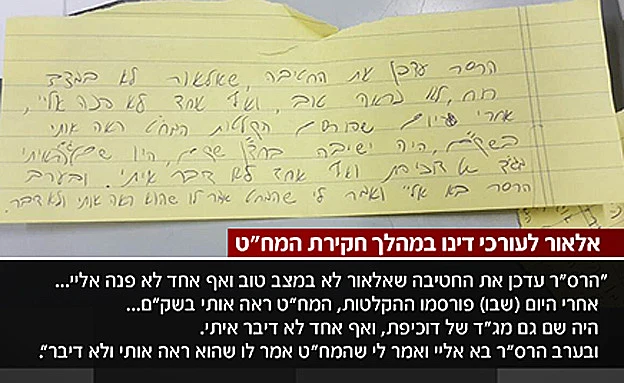 הרסר עדכן את החטיבה, שאלאור לא במצב
רוח, לא נראה טוב, ואף אחד לא פנה אליי,
אחרי היום שפורסם הקלטות המחט ראה אותי
בשקם, היה ישיבה בחדן שקם, היו שם
מגד דוכיפת ואף אחד לא דבר איתי. ובערב
הרסר בא אליי ואמר לי שהמחט אמר לו שהוא ראה אותי ולא דבר.
אלאור לעורכי דינו במהלך חקירת המח"ט
"הרס"ר עדכן את החטיבה שאלאור לא במצב טוב ואף אחד לא פנה אליי...
אחרי היום (שבו) פורסמו ההקלטות, המח"ט ראה אותי בשק"ם...
היה שם גם מג"ד של דוכיפת, ואף אחד לא דיבר איתי.
ובערב הרס"ר בא אליי ואמר לי שהמח"ט אמר לו שהוא ראה אותי ולא דיבר".